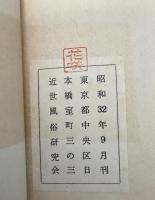 花咲
昭和32年9月刊
東京都中央区日
本橋室町三の三
近世風俗研究会